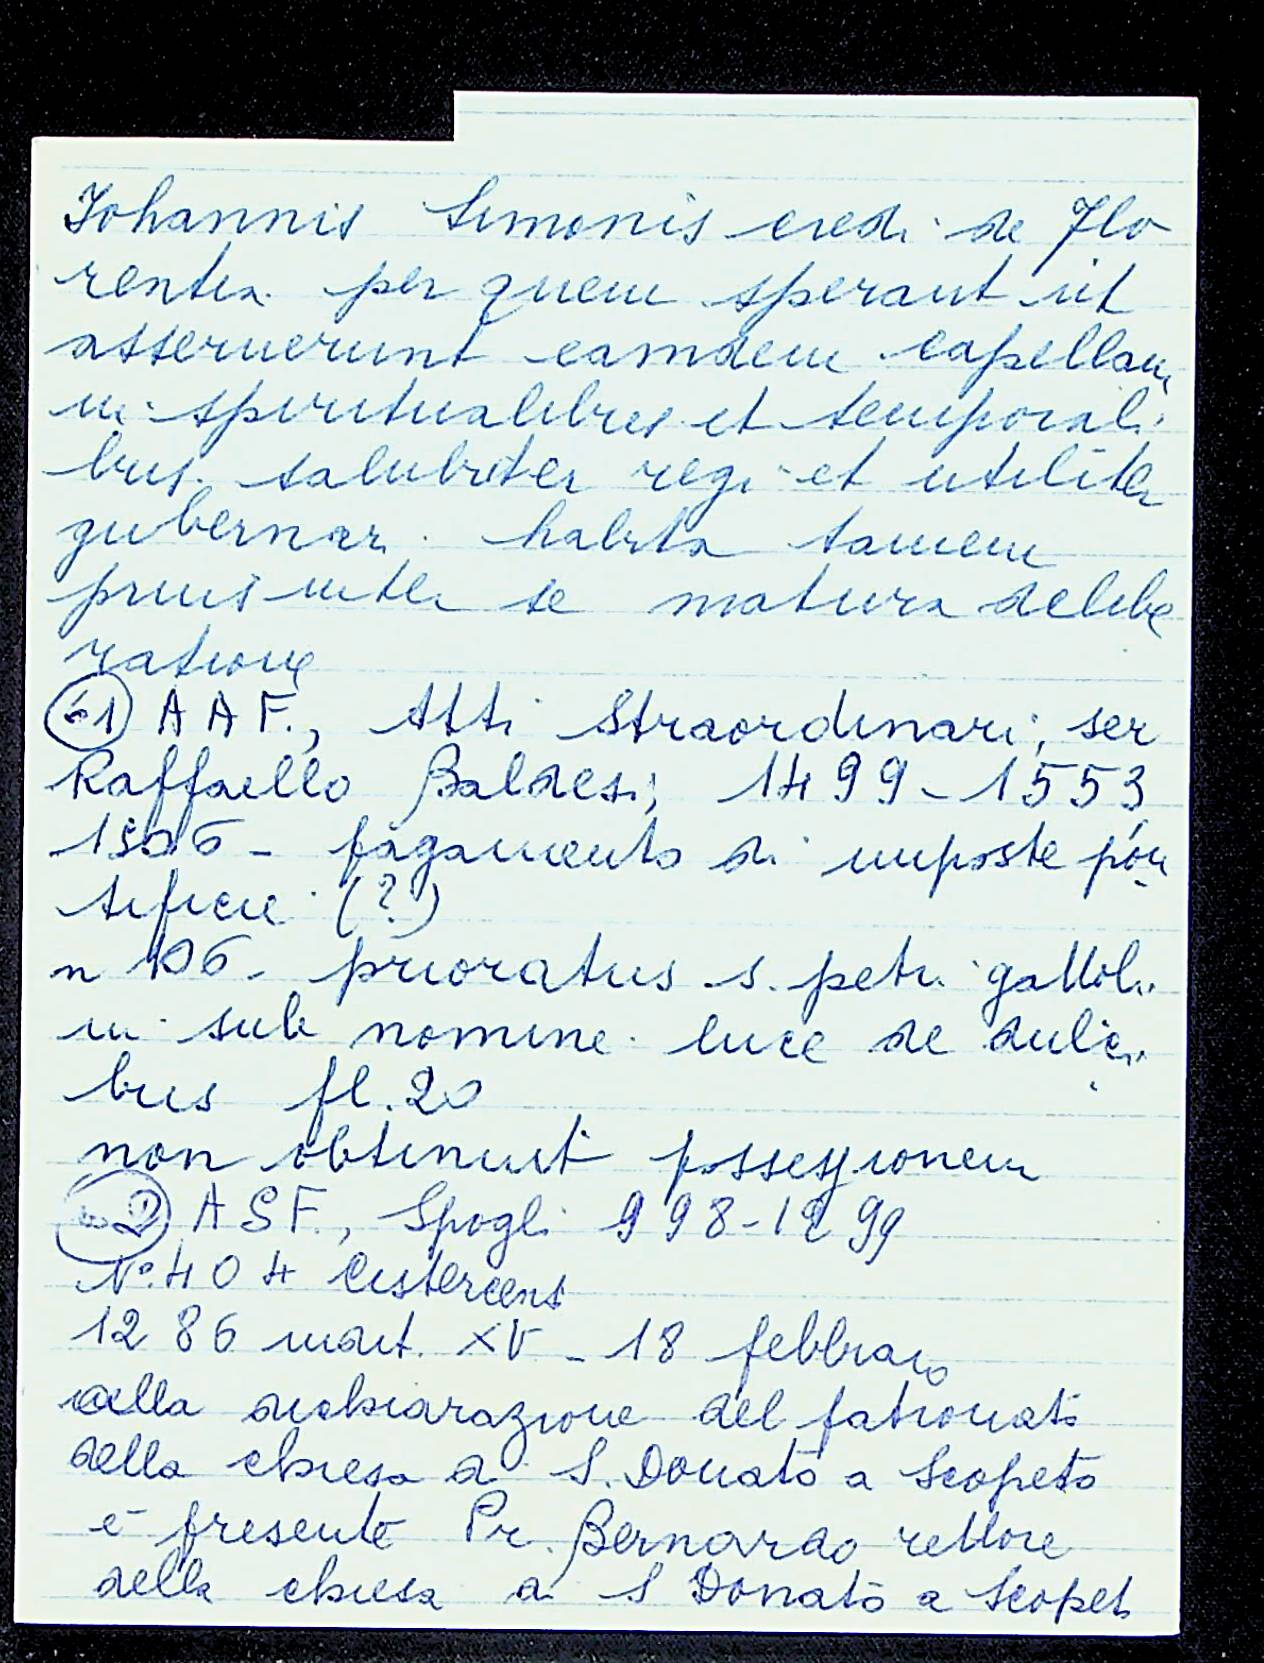 Johannis Simonis eredi de Flo
rentia per quem sperant ut
asseruerunt eamdem capellam
in spiritualibus et temporali
bus salubriter regi et utiliter
gubernari habita tamen
prius inter se matura delibe
ratione
61 A A F., Atti Straordinari, ser
Raffaello Baldesi; 1499-1553
1506 - pagamento di imposte pon
tificie (?)
n 106 - prioratus s. petri gattoli
in sub nomine luce de dulci
bus fl. 20
non obtinuit possessionem
62 A S F., Spogli 998-1299
N° 404 Cistercens
1286 indit. XV - 18 febbraio
nella dichiarazione del patronato
della chiesa di S. Donato a Scopeto
è presente Pr. Bernardo rettore
della chiesa di S Donato a Scopet